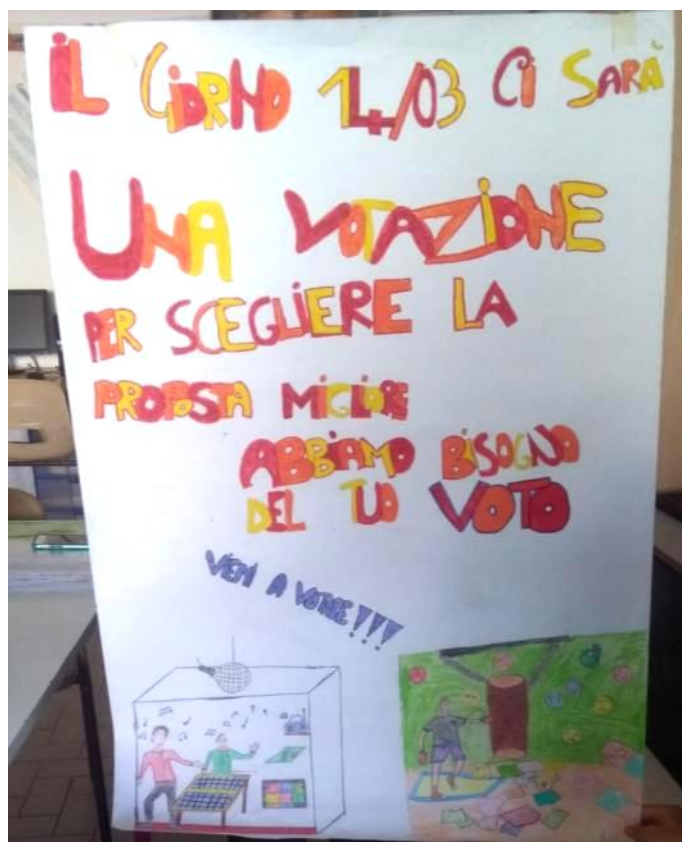 IL GIORNO 14/03 CI SARÀ
UNA VOTAZIONE
PER SCEGLIERE LA
PROPOSTA MIGLIORE
ABBIAMO BISOGNO
DEL TUO VOTO
VIENI A VOTARE!!!